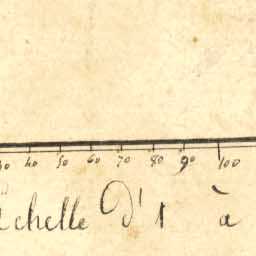 30 40 50 60 70 80 90 100
Echelle d'1 à